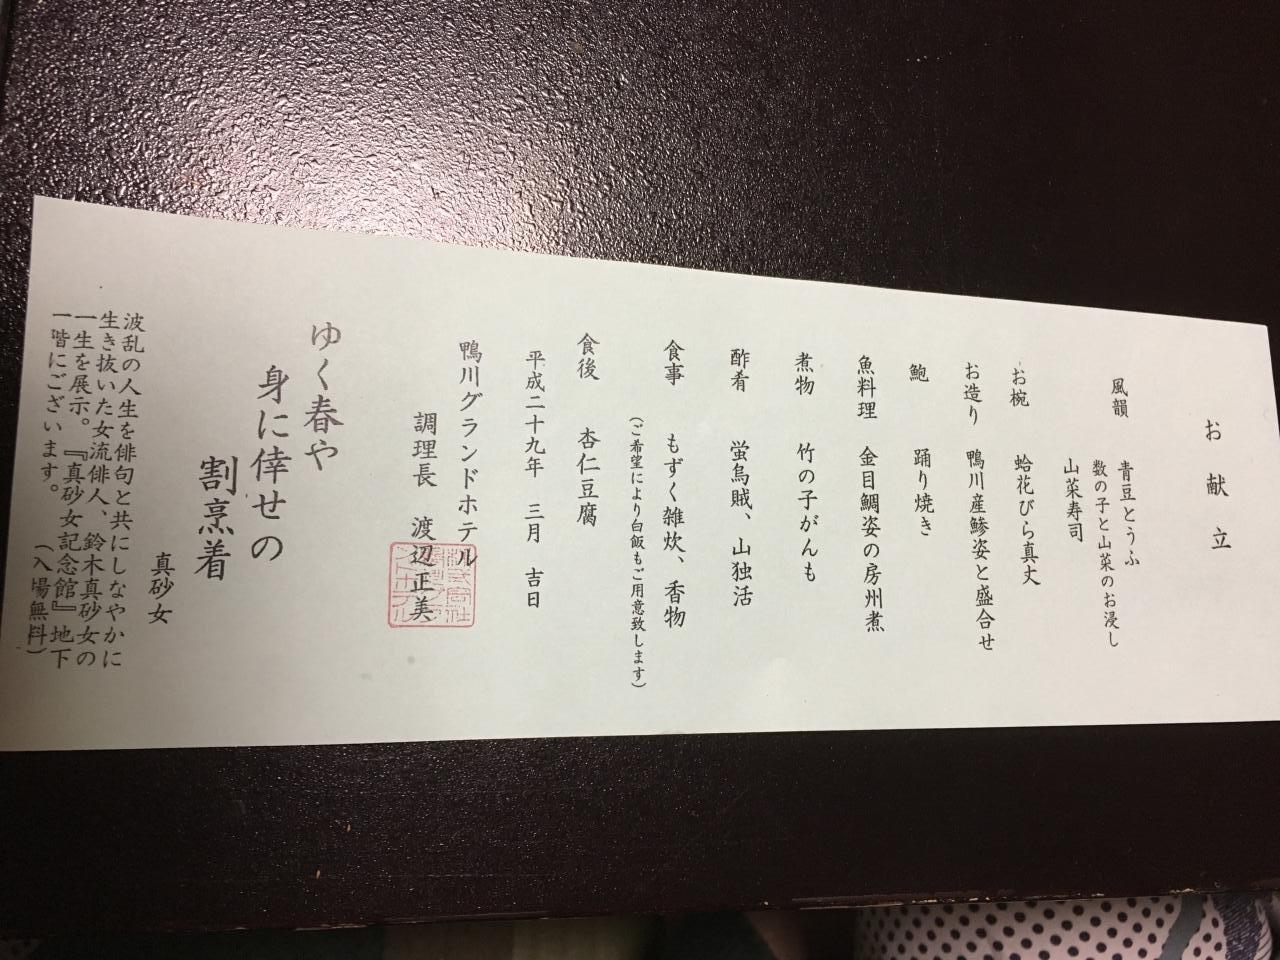 お献立
風韻　青豆とうふ
数の子と山菜のお浸し
山菜寿司
お椀　蛤花びら真丈
お造り　鴨川産鯵姿と盛合せ
鮑　踊り焼き
魚料理　金目鯛姿の房州煮
煮物　竹の子がんも
酢肴　蛍烏賊、山独活
食事　もずく雑炊、香物
（ご希望により白飯もご用意致します）
食後　杏仁豆腐
平成二十九年　三月　吉日
鴨川グランドホテル
調理長　渡辺正美
ゆく春や
身に倖せの
割烹着
真砂女
波乱の人生を俳句と共にしなやかに
生き抜いた女流俳人、鈴木真砂女の
一生を展示。『真砂女記念館』地下
一階にございます。（入場無料）